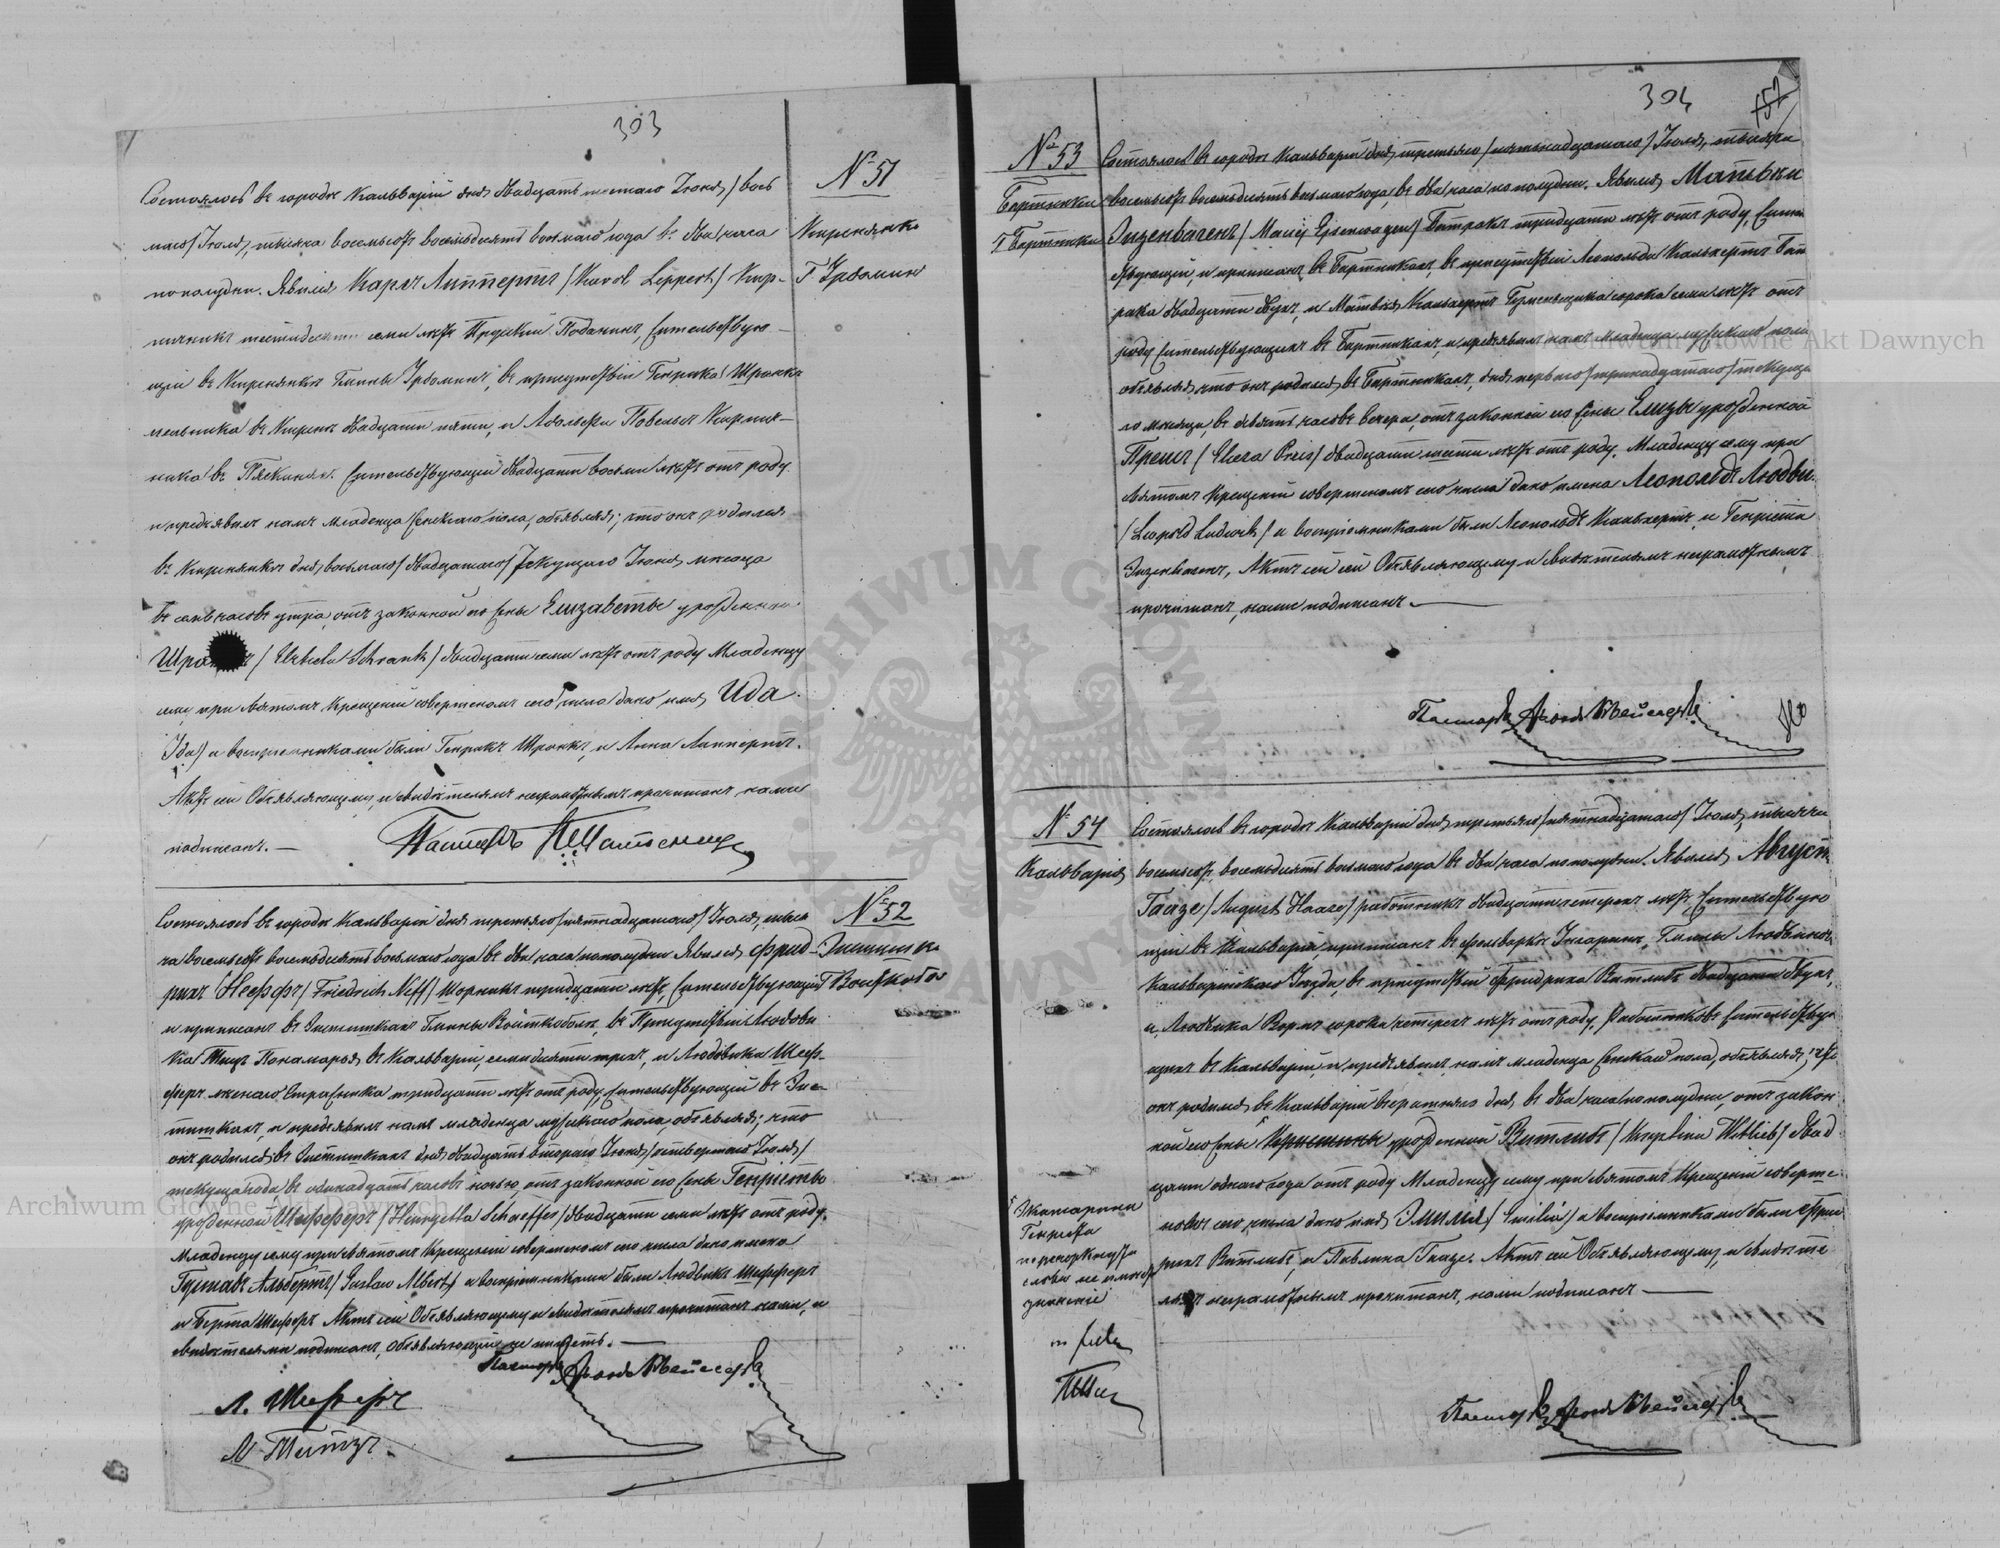 303
№ 51
Кирснянки
Г Урдоминъ
Состоялось въ городѣ Кальваріи дня двадцать шестаго Іюня /вось
маго/ Іюля, тысяча восемьсотъ восемьдесятъ восьмаго года въ два часа
пополудни. Явился Карлъ Липпертъ /Karol Leppert/ Кир-
пичникъ семи лѣтъ Прускій Подданный, жительствую-
щій въ Кирснянкѣ Гмины Урдоминъ, въ присутствіи Генриха Шранка
мельника въ двадцати пяти, и Адольфа Кирпич-
ника въ жительствующій двадцати восьми лѣтъ отъ роду
и предъявилъ намъ младенца женскаго пола, объявляя, что онъ родился
въ Кирснянкѣ дня восьмаго /двадцатаго/ текущаго Іюня мѣсяца
въ семь часовъ утра, отъ законной его жены Елизаветы урожденной
/Elzbieta Schrank/ двадцати семи лѣтъ отъ роду Младенцу
сему при Святомъ Крещеніи совершеномъ сего числа дано имя Ида
/Ida/ а воспріемниками были Генрихъ Шранкъ, и Анна Липпертъ.
Актъ сей Объявляющему, и свидѣтелямъ неграмотнымъ прочитанъ нами
подписанъ. —
Пасторъ
№ 52
Г Войткоболь
Состоялось въ городѣ Кальваріи дня третьяго /пятнадцатаго/ Іюля, тыся
ча восемьсотъ восемьдесятъ восьмаго года въ два часа пополудни Явился Фрид-
рихъ Неффъ /Friedrich Neff/ Шорникъ тридцати лѣтъ, жительствующій
и приписанъ въ Гмины Войткоболь, въ Присутствіи Людови
ка Титцъ Понамарья въ Кальваріи, семидесяти трехъ, и Людовика Шеф-
феръ Стражника тридцати лѣтъ отъ роду, жительствующій въ
и предъявилъ намъ младенца мужскаго пола, объявляя, что
онъ родился въ дня двадцать втораго Іюня /четвертаго Іюля/
текущаго года въ одинадцать часовъ ночью, отъ законной его жены Генріетты
урожденной Шефферъ /Henryetta Schaeffer/ двадцати семи лѣтъ отъ роду.
Младенцу сему при Святомъ Крещеніи совершеномъ сего числа дано имена
Густавъ Альбертъ /Gustaw Albert/ а воспріемниками были Людвикъ Шефферъ
и Берта Шеферъ Актъ сей Объявляющему и свидѣтелямъ прочитанъ нами, и
свидѣтелями подписанъ, объявляющій не пишетъ. —
Пасторъ
Л. Шеферъ
Л Титцъ.
304
№ 53
Бартники
Г Бартники
Состоялось въ городѣ Кальваріи дня третьяго /пятьнадцатаго/ Іюля, тысяча
восемьсотъ восемьдесятъ восьмаго года, въ два часа пополудни. Явился Матвѣй
Эйзенвагенъ /Maciej Ejsenwagen/ Батракъ тридцати лѣтъ отъ роду, житель
ствующій, и приписанъ въ Бартникахъ въ присутствіи Леопольда Кальвертъ Бат
рака двадцати двухъ, и Матвѣя Кальвертъ сорока семи лѣтъ отъ
роду жительствующихъ въ Бартникахъ, и предъявилъ намъ младенца мужскаго пола
объявляя, что онъ родился въ Бартникахъ, дня перваго /тринадцатаго/ текуща
го мѣсяца, въ девять часовъ вечера, отъ законной его жены Елизы урожденной
Прейсъ двадцати шести лѣтъ отъ роду. Младенцу сему при
Святомъ Крещеніи совершеномъ сего числа дано имена Леопольдъ Людви
/Leopold Ludwik/ а воспріемниками были Леопольдъ Кальвертъ и Генріетта
Эйзенвагенъ, Актъ сей Объявляющему и свидѣтелямъ неграмотнымъ
прочитанъ, нами подписанъ. —
Пасторъ
№ 54
Кальварія
Состоялось въ городѣ Кальваріи дня третьяго /пятнадцатаго/ Іюля, тысяча
восемьсотъ восемьдесятъ восьмаго года въ два часа пополудни. Явился Августъ
Гаазе /August Haaze/ работникъ двадцати четырехъ лѣтъ, жительствую
щій въ Кальваріи, приписанъ въ фольваркѣ Гмины Людвиново
Кальварійскаго Уѣзда, въ присутствіи Фридриха Витлибъ двадцати двухъ,
и Людвика Вормъ сорока четырехъ лѣтъ отъ роду, Работниковъ жительствую
щихъ въ Кальваріи, и предъявилъ намъ младенца женскаго пола, объявляя, что
онъ родился въ Кальваріи вчерашняго дня, въ два часа пополудни, отъ закон
ной его жены урожденной Витлибъ двад
цати одного года отъ роду Младенцу сему при Святомъ Крещеніи соверше
номъ сего числа дано имя Эмилія /Emilia/ а воспріемниками были Фрид
рихъ Витлибъ, и Павлина Гаазе. Актъ сей Объявляющему, и свидѣте
лямъ неграмотнымъ прочитанъ, нами подписанъ —
Екатарина
слова не имѣютъ
значенія
Пасторъ
Archiwum Główne Akt Dawnych
Archiwum Główne Akt Dawnych
ARCHIWUM GŁÓWNE AKT DAWNYCH